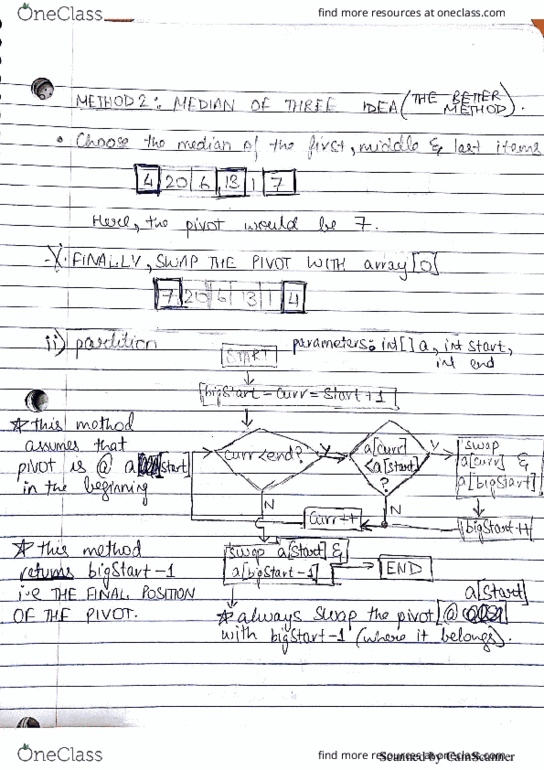 OneClass
find more resources at oneclass.com
METHOD 2: MEDIAN OF THREE IDEA (THE BETTER METHOD).
• Choose the median of the first, middle & last items
4 20 6 13 1 7
Here, the pivot would be 7.
FINALLY, SWAP THE PIVOT WITH array[0]
7 20 6 13 1 4
ii) partition
parameters: int[] a, int start,
int end
START
bigStart = curr = start + 1
* this method
assumes that
pivot is @ a[start]
in the beginning
curr<end?
Y
a[curr]
<a[start]
?
Y
swap
a[curr] &
a[bigStart]
N
N
curr++
bigStart++
* this method
returns bigStart-1
i.e THE FINAL POSITION
OF THE PIVOT.
swap a[start] &
a[bigStart-1]
END
a[start]
* always swap the pivot @
with bigStart-1 (where it belongs).
OneClass
find more resources at oneclass.com
Scanned by CamScanner